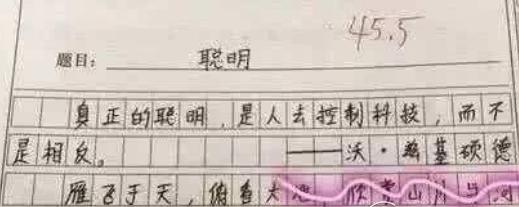 45.5
题目：聪明
真正的聪明，是人去控制科技，而不
是相反。——沃·兹基硕德
雁飞于天，俯看大